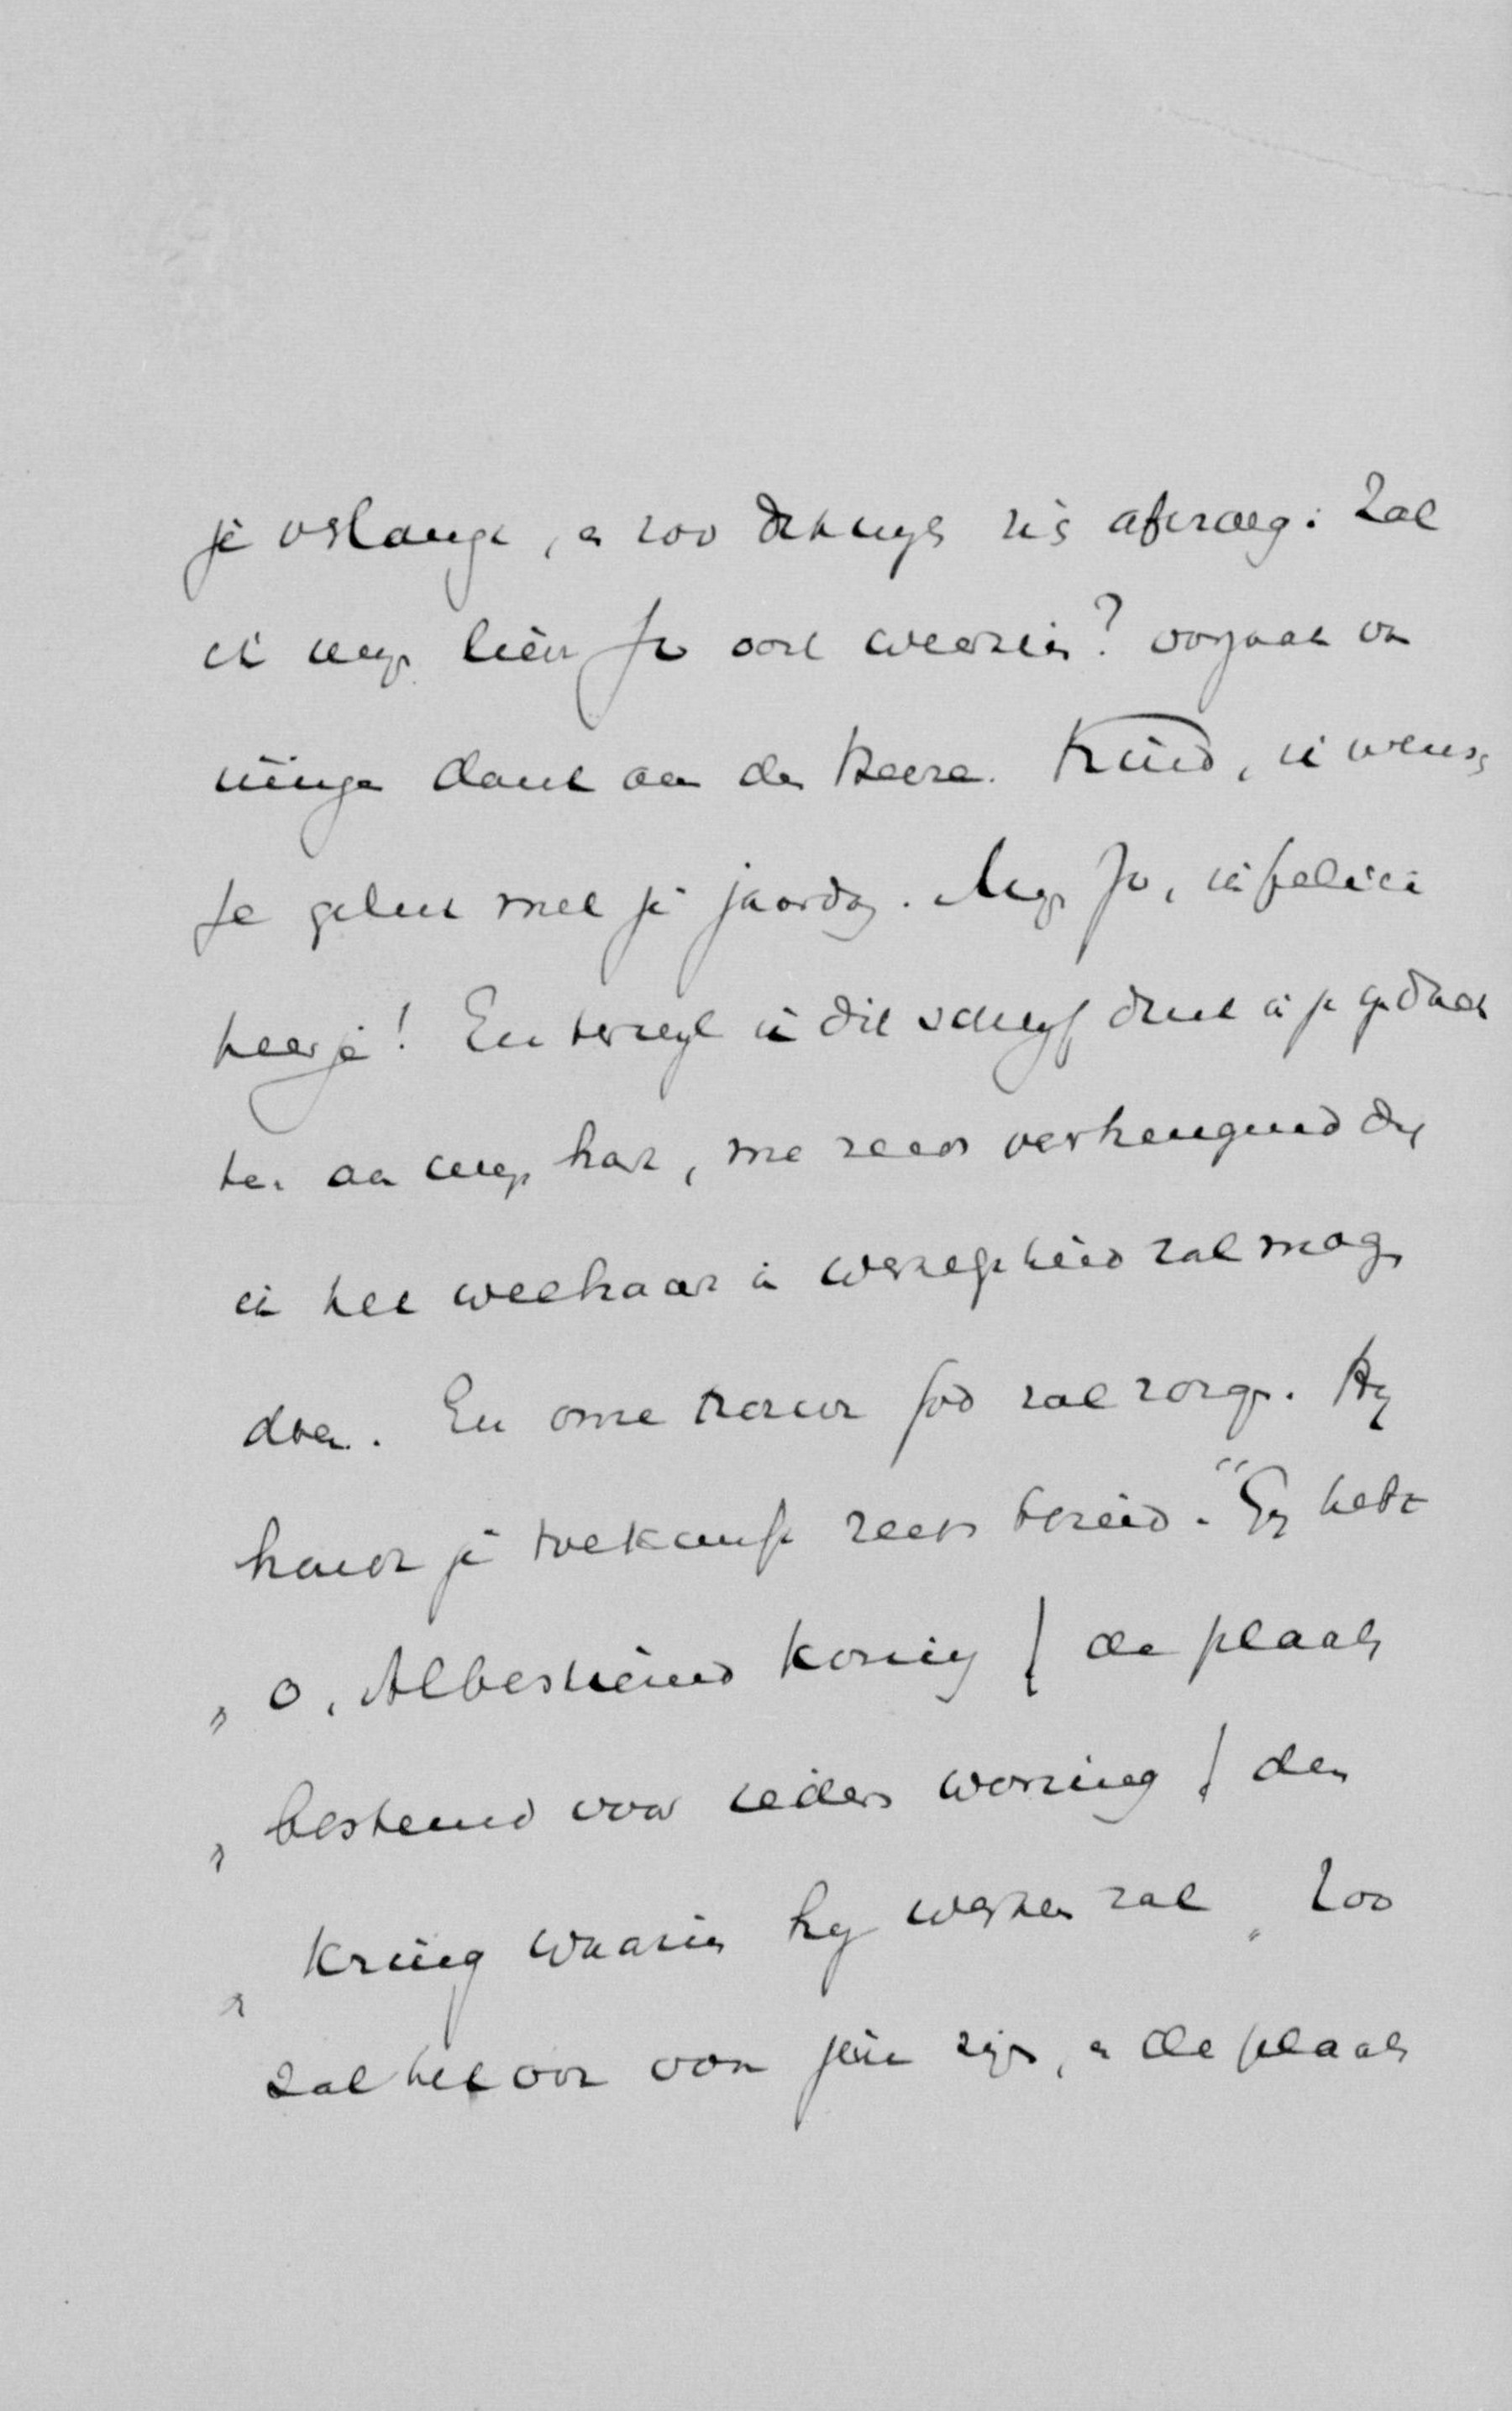 je verlangde, en zoo dikwijls zich afvroeg: Zal
ik mijn lieve Jo ooit weerzien? vooraal van
innige dank aan den Heere. Kind, ik wensch
je geluk met je jaardag. Mijn Jo, ik felici
teer je! En terwijl ik dit schrijf druk ik je in gedach
ten aan mijn hart, me reeds verheugend dat
ik het weldaar in werkelijkheid zal mogen
doen. En onze trouwe God zal zorgen. Hij
houdt je toekomst reeds bereid. "Gij hebt
„ o, Albestierend Koning / de plaats
„ bestemd voor ieders woning / den
„ Kring waarin hij werken zal „ Zoo
zal het ook voor jou zijn, en de plaats